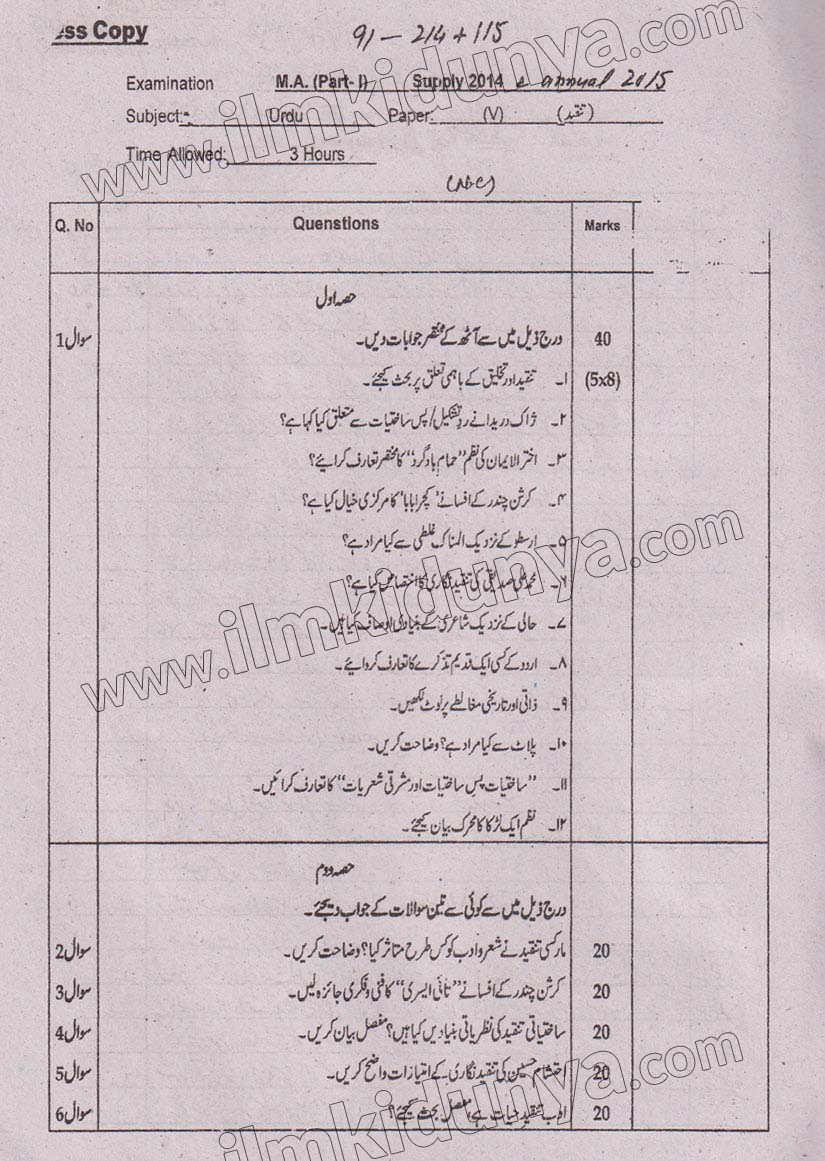 ess Copy
91 – 214 + 115
Examination M.A. (Part- I) Supply 2014 & annual 2015
Subject: Urdu Paper: (V) (تنقید)
Time Allowed: 3 Hours
Q. No Quenstions Marks
حصہ اول
سوال 1 درج ذیل میں سے آٹھ کے مختصر جوابات دیں۔ 40
۱۔ تنقید اور تخلیق کے باہمی تعلق پر بحث کیجئے۔ (5x8)
۲۔ ژاک دریدا نے ردِ تشکیل/پس ساختیات سے متعلق کیا کہا ہے؟
۳۔ اختر الایمان کی نظم "حمام بادگرد" کا مختصر تعارف کرائیے؟
۴۔ کرشن چندر کے افسانے 'کچرا بابا' کا مرکزی خیال کیا ہے؟
۵۔ ارسطو کے نزدیک المناک غلطی سے کیا مراد ہے؟
۶۔ محمد علی صدیقی کی تنقید نگاری کا اختصاص کیا ہے؟
۷۔ حالی کے نزدیک شاعری کے بنیادی اوصاف کیا ہیں۔
۸۔ اردو کے کسی ایک قدیم تذکرے کا تعارف کروائیے۔
۹۔ ذاتی اور تاریخی مغالطے پر نوٹ لکھیں۔
۱۰۔ پلاٹ سے کیا مراد ہے؟ وضاحت کریں۔
۱۱۔ "ساختیات پس ساختیات اور مشرقی شعریات" کا تعارف کرائیں۔
۱۲۔ نظم ایک لڑکا کا محرک بیان کیجئے۔
حصہ دوم
درج ذیل میں سے کوئی سے تین سوالات کے جواب دیجئے۔
سوال 2 مارکسی تنقید نے شعر و ادب کو کس طرح متاثر کیا؟ وضاحت کریں۔ 20
سوال 3 کرشن چندر کے افسانے "تائی ایسری" کا فنی و فکری جائزہ لیں۔ 20
سوال 4 ساختیاتی تنقید کی نظریاتی بنیادیں کیا ہیں؟ مفصل بیان کریں۔ 20
سوال 5 احتشام حسین کی تنقید نگاری۔ کے امتیازات واضح کریں۔ 20
سوال 6 ادب تنقید حیات ہے، مفصل بحث کیجئے؟ 20
www.ilmkidunya.com
www.ilmkidunya.com
www.ilmkidunya.com